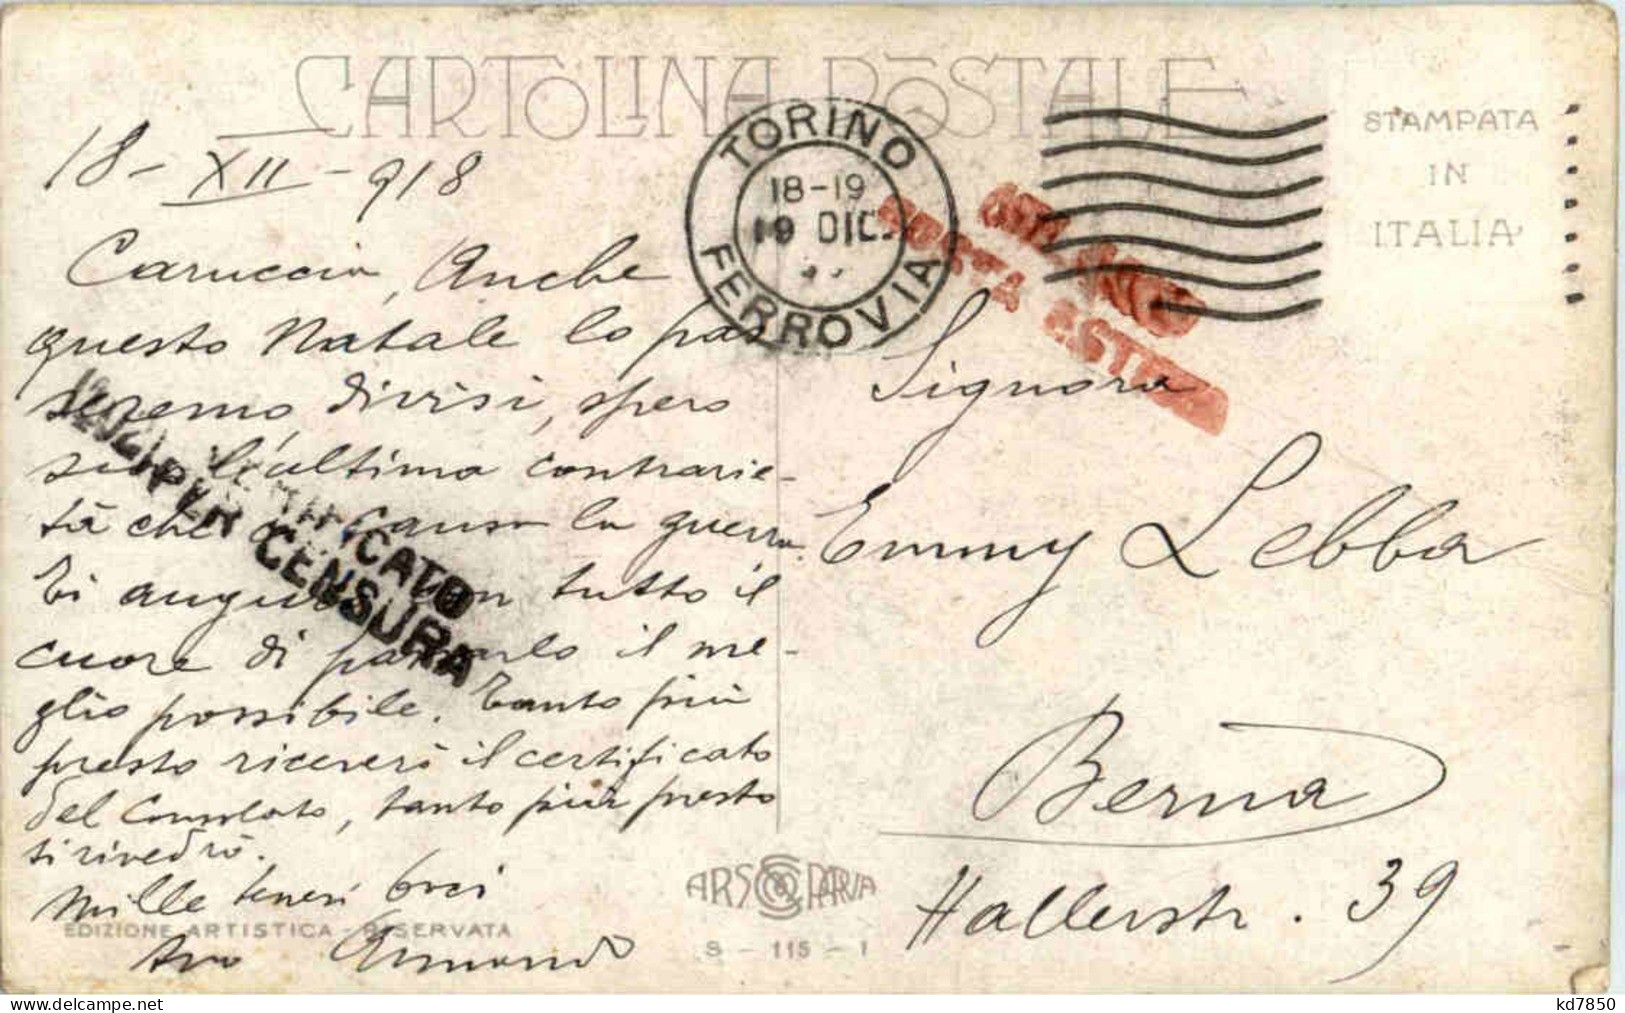 CARTOLINA POSTALE
STAMPATA
IN
ITALIA
TORINO
18-19
19 DIC.
FERROVIA
POSTA ESTERA
18-XII-918
Caruccia, Anche
questo Natale lo pas
seremo divisi, spero
sia l'ultima contrarie-
tà che causa la guerra.
Ti auguro con tutto il
cuore di passarlo il me-
glio possibile. Tanto più
presto riceverò il certificato
del Consolato, tanto più presto
ti rivedrò.
Mille teneri baci
tuo Armando
VERIFICATO
PER CENSURA
Signora
Emmy Lebba
Berna
Hallerstr. 39
EDIZIONE ARTISTICA - RISERVATA
ARS PARVA
S - 115 - 1
kd7850